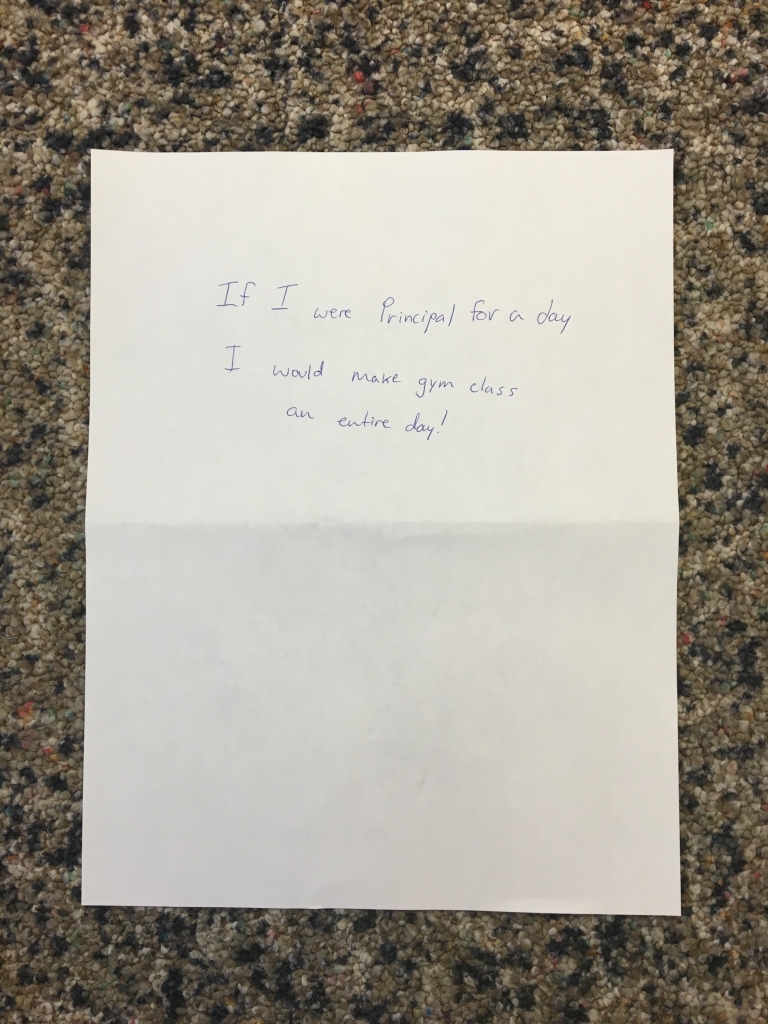 If I were Principal for a day
I would make gym class
an entire day!